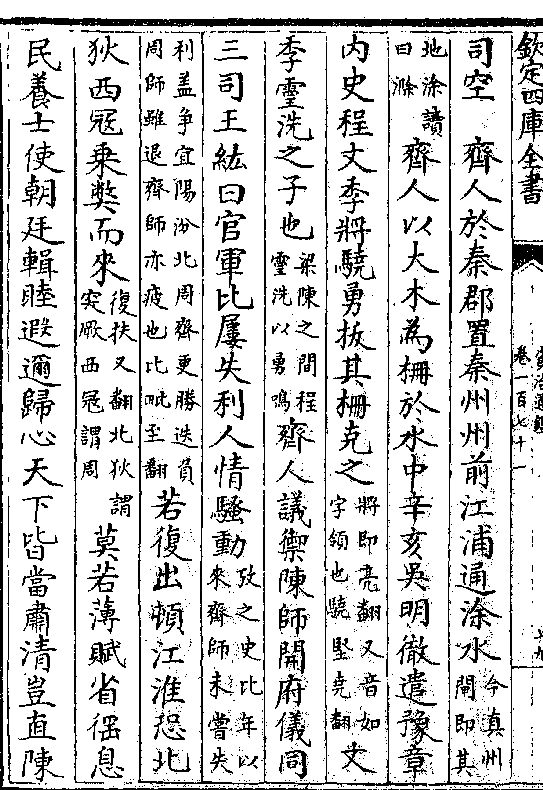 欽定四庫全書
資治通鑑
卷一百七十一
十九
司空　齊人於秦郡置秦州州前江浦通涂水今真州閘即其
地涂讀曰滁齊人以大木為柵於水中辛亥吳明徹遣豫章
内史程文季將驍勇拔其柵克之將即亮翻又音如字領也驍堅堯翻文
季靈洗之子也梁陳之間程靈洗以勇鳴齊人議禦陳師開府儀同
三司王紘曰官軍比屢失利人情騷動攷之史比年以來齊師未嘗失
利盖争宜陽汾北周齊更勝迭負周師雖退齊師亦疲也比毗至翻若復出頓江淮恐北
狄西寇乗獘而來復扶又翻北狄謂突厥西寇謂周莫若薄賦省徭息
民養士使朝廷輯睦遐邇歸心天下皆當肅清豈直陳